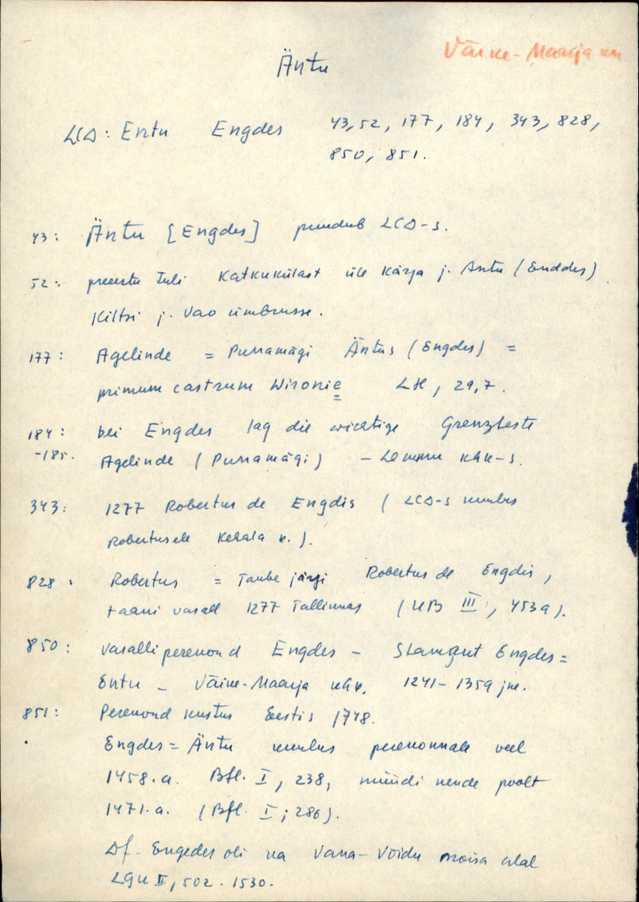 Väike-Maarja khk
Äntu
LCD: Entu Engdes 43, 52, 177, 184, 343, 828,
850, 851.
43: Äntu [Engdes] puudub LCD-s.
52: tuli Katkukülast üle Kärsa j. Äntu (Enddes)
Kiltsi j. Vao ümbrusse.
177: Agelinde = Punamägi Äntus (Engdes) =
primum castrum Wironie LH, 29,7.
184: bei Engdes lag die wichtige Grenzfeste
-185. Agelinde (Punamägi) - Lemmu khk-s.
343: 1277 Robertus de Engdis (LCD-s kuulus
Robertusele Kehala k.).
828: Robertus = Taube järgi Robertus de Engdis,
taani vasall 1277 Tallinnas (UB III, 453a).
850: Vasalliperekond Engdes - Stamgut Engdes =
Entu - Väike-Maarja khk. 1241-1359 jne.
851: Perekond kustus Eestis 1748.
Engdes = Äntu kuulus perekonnale veel
1458.a. Bfl. I, 238, müüdi nende poolt
1471.a. (Bfl. I; 286).
Df. Engedes oli ka Vana-Võidu mõisa alal
LGU II, 502. 1530.